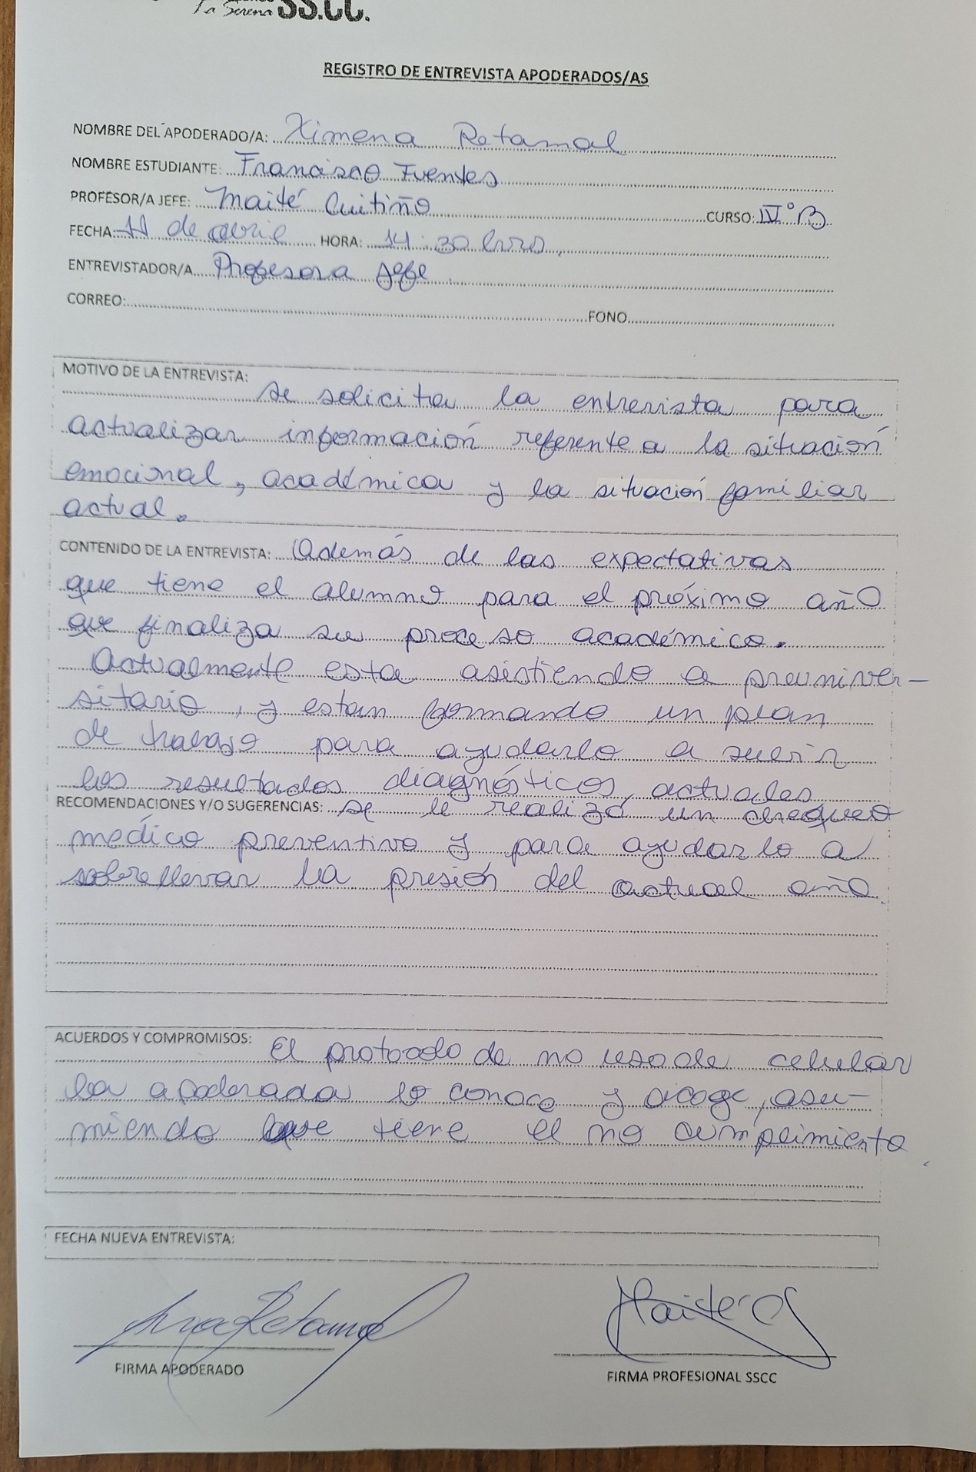 La Serena SS.CC.
REGISTRO DE ENTREVISTA APODERADOS/AS
NOMBRE DEL APODERADO/A: Ximena Retamal
NOMBRE ESTUDIANTE: Francisco Fuentes
PROFESOR/A JEFE: Maité Cuitiño CURSO: IV°B
FECHA: 11 de abril HORA: 14:30 hrs.
ENTREVISTADOR/A Profesora Jefe
CORREO: FONO
MOTIVO DE LA ENTREVISTA:
Se solicita la entrevista para
actualizar información referente a la situación
emocional, académica y la situación familiar
actual.
CONTENIDO DE LA ENTREVISTA: Además de las expectativas
que tiene el alumno para el próximo año
que finaliza su proceso académico.
Actualmente esta asistiendo a preuniver-
sitario, y estan formando un plan
de trabajo para ayudarlo a subir
los resultados diagnósticos, actuales
RECOMENDACIONES Y/O SUGERENCIAS: se le realizó un chequeo
medico preventivo y para ayudarlo a
sobrellevar la presión del actual año.
ACUERDOS Y COMPROMISOS: El protocolo de no uso de celular
la apoderada lo conoce y acoge, asu-
miendo que tiene el no cumplimiento.
FECHA NUEVA ENTREVISTA:
Retamal
Maite C
FIRMA APODERADO
FIRMA PROFESIONAL SSCC